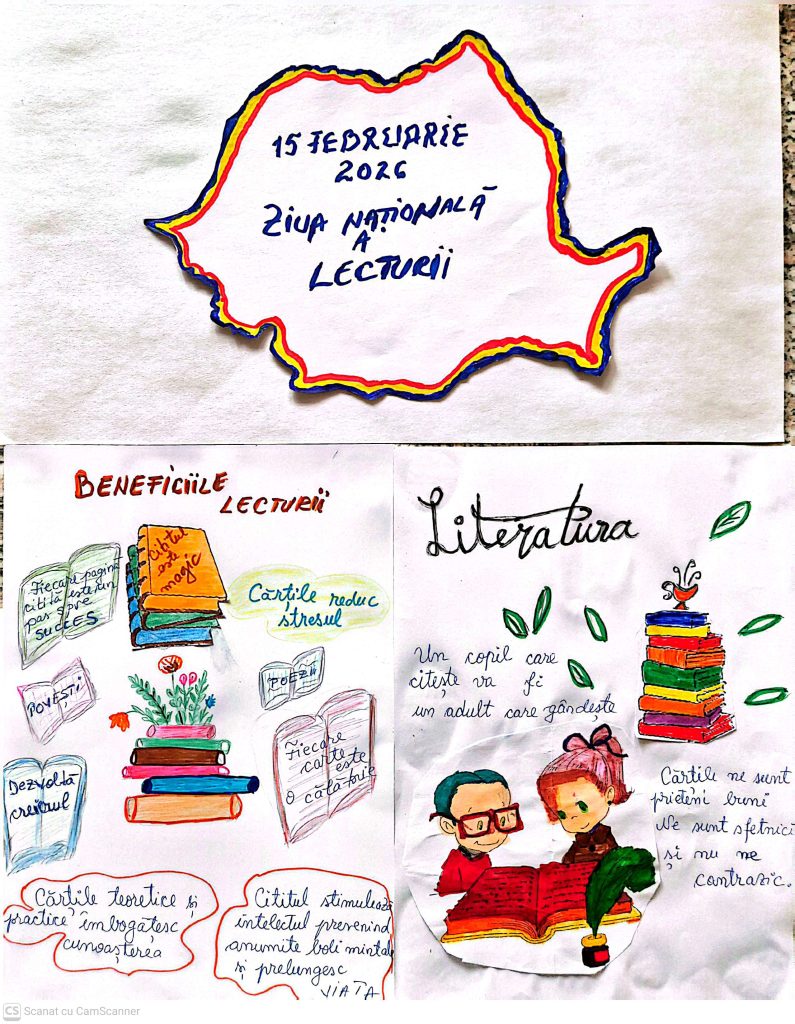 15 FEBRUARIE
2026
ZIUA NAȚIONALĂ
A
LECTURII
BENEFICIILE
LECTURII
Fiecare pagină
citită este un
pas spre
SUCCES
Cititul
este
magic
Cărțile reduc
stresul
POVEȘTI
POEZII
Fiecare
carte
este
o călătorie
Dezvoltă
creierul
Cărțile teoretice și
practice îmbogățesc
cunoașterea
Cititul stimulează
intelectul prevenind
anumite boli mintale
și prelungesc
VIAȚA
Literatura
Un copil care
citește va fi
un adult care gândește
Cărțile ne sunt
prieteni buni
Ne sunt sfetnici
și nu ne
contrazic.
CS Scanat cu CamScanner